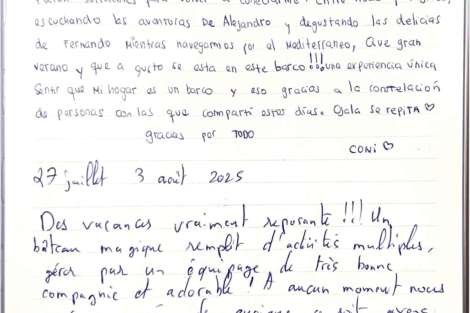 escuchando las aventuras De Alejandro y degustando las delicias
de Fernando mientras navegamos por el Mediterraneo, Que gran
verano y que a gusto se esta en este barco!!! una experiencia única
Sentir que mi hogar es un barco y eso gracias a la constelación
de personas con las que comparti estos dias. Ojala se repita ♡
gracias por TODO
CONI ♡
27 juillet 3 août 2025
Des vacances vraiment reposante !!! Un
bâteau magique remplit d'activités multiples,
gérer par un équipage de très bonne
compagnie et adorable ! A aucun moment nous